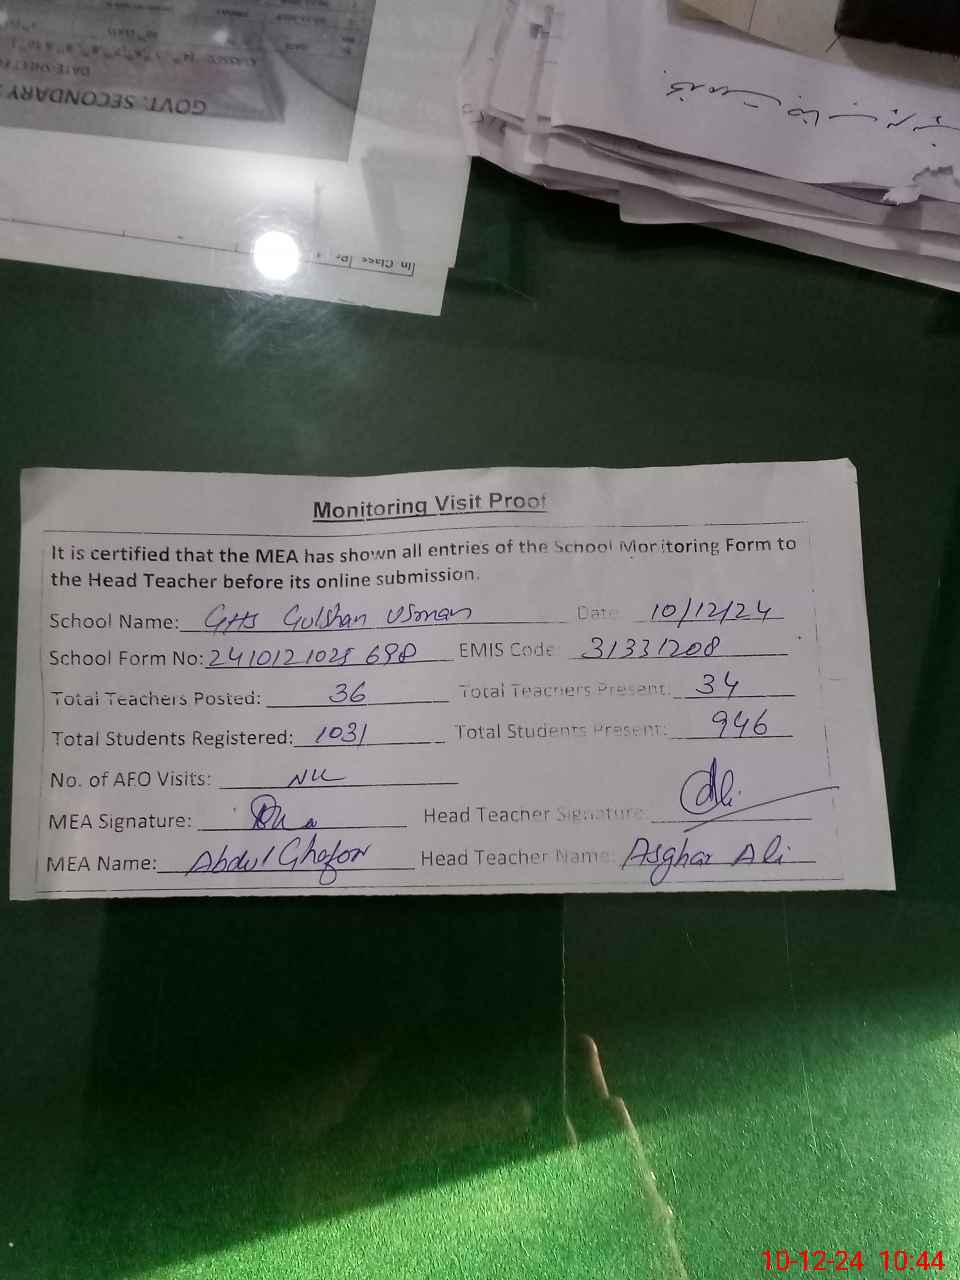 GOVT. SECONDARY
DATE SHEET
In Class
Monitoring Visit Proof
It is certified that the MEA has shown all entries of the School Monitoring Form to
the Head Teacher before its online submission.
School Name: GHS Gulshan Usman Date 10/12/24
School Form No: 2410121025698 EMIS Code: 31331208
Total Teachers Posted: 36 Total Teachers Present: 34
Total Students Registered: 1031 Total Students Present: 946
No. of AEO Visits: Nil
MEA Signature: Head Teacher Signature: Ali
MEA Name: Abdul Ghafor Head Teacher Name: Asghar Ali
10-12-24 10:44